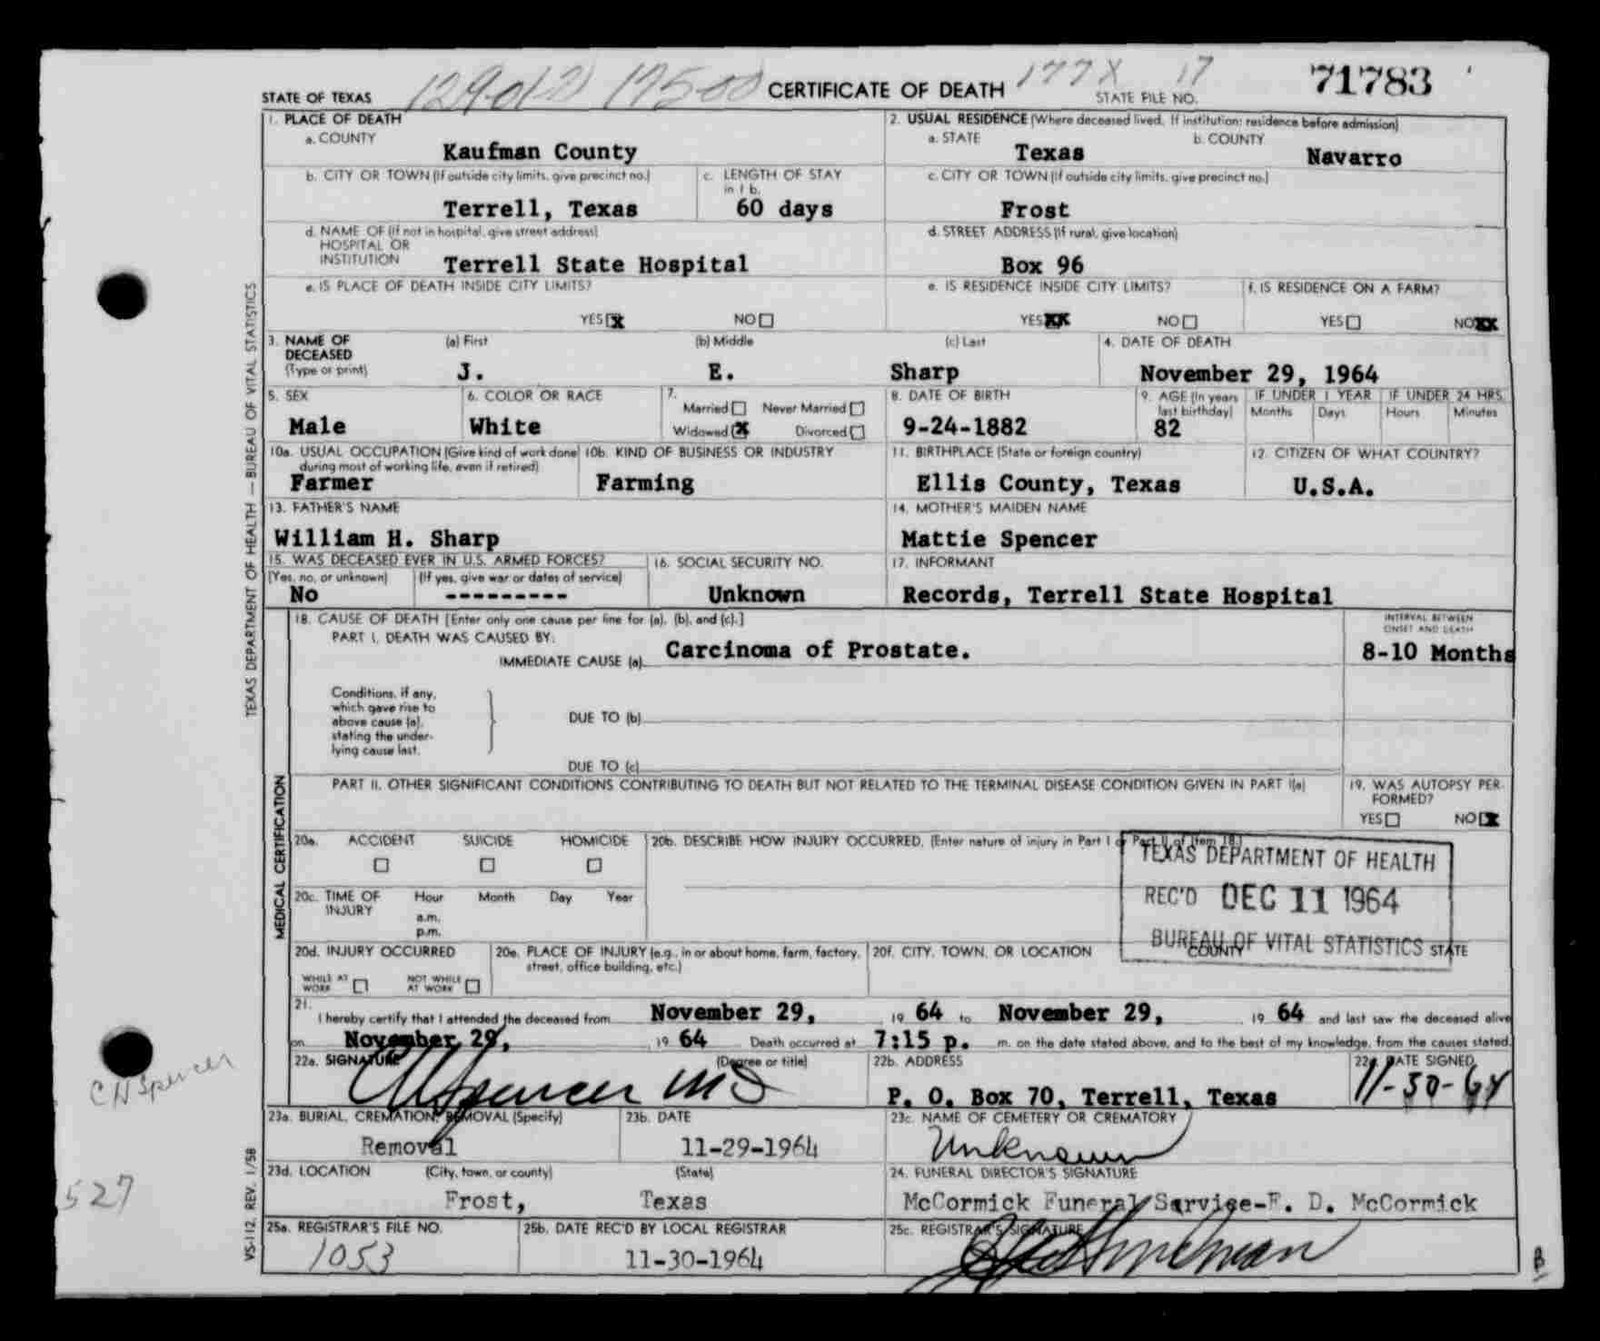 STATE OF TEXAS 17500 CERTIFICATE OF DEATH 177X 17 STATE FILE NO. 71783
1. PLACE OF DEATH 2. USUAL RESIDENCE (Where deceased lived. If institution: residence before admission)
a. COUNTY Kaufman County a. STATE Texas b. COUNTY Navarro
b. CITY OR TOWN (If outside city limits, give precinct no.) c. LENGTH OF STAY in 1 b. c. CITY OR TOWN (If outside city limits, give precinct no.)
Terrell, Texas 60 days Frost
d. NAME OF (If not in hospital, give street address) HOSPITAL OR INSTITUTION d. STREET ADDRESS (If rural, give location)
Terrell State Hospital Box 96
e. IS PLACE OF DEATH INSIDE CITY LIMITS? e. IS RESIDENCE INSIDE CITY LIMITS? f. IS RESIDENCE ON A FARM?
YES X NO YES XX NO YES NO XX
3. NAME OF DECEASED (Type or print) (a) First (b) Middle (c) Last 4. DATE OF DEATH
J. E. Sharp November 29, 1964
5. SEX 6. COLOR OR RACE 7. Married Never Married Widowed X Divorced 8. DATE OF BIRTH 9. AGE (In years last birthday) IF UNDER 1 YEAR Months Days IF UNDER 24 HRS. Hours Minutes
Male White 9-24-1882 82
10a. USUAL OCCUPATION (Give kind of work done during most of working life, even if retired) 10b. KIND OF BUSINESS OR INDUSTRY 11. BIRTHPLACE (State or foreign country) 12. CITIZEN OF WHAT COUNTRY?
Farmer Farming Ellis County, Texas U.S.A.
13. FATHER'S NAME 14. MOTHER'S MAIDEN NAME
William H. Sharp Mattie Spencer
15. WAS DECEASED EVER IN U.S. ARMED FORCES? 16. SOCIAL SECURITY NO. 17. INFORMANT
(Yes, no, or unknown) (If yes, give war or dates of service)
No --------- Unknown Records, Terrell State Hospital
18. CAUSE OF DEATH [Enter only one cause per line for (a), (b), and (c).] INTERVAL BETWEEN ONSET AND DEATH
PART I. DEATH WAS CAUSED BY:
IMMEDIATE CAUSE (a) Carcinoma of Prostate. 8-10 Months
Conditions, if any,
which gave rise to
above cause (a),
stating the under-
lying cause last.
DUE TO (b)
DUE TO (c)
PART II. OTHER SIGNIFICANT CONDITIONS CONTRIBUTING TO DEATH BUT NOT RELATED TO THE TERMINAL DISEASE CONDITION GIVEN IN PART I(a) 19. WAS AUTOPSY PER-
FORMED?
YES NO X
20a. ACCIDENT SUICIDE HOMICIDE 20b. DESCRIBE HOW INJURY OCCURRED. (Enter nature of injury in Part I or Part II of Item 18.)
TEXAS DEPARTMENT OF HEALTH
REC'D DEC 11 1964
BUREAU OF VITAL STATISTICS
20c. TIME OF INJURY Hour Month Day Year
a.m.
p.m.
20d. INJURY OCCURRED 20e. PLACE OF INJURY (e.g., in or about home, farm, factory, street, office building, etc.) 20f. CITY, TOWN, OR LOCATION COUNTY STATE
WHILE AT WORK NOT WHILE AT WORK
21. I hereby certify that I attended the deceased from November 29, 19 64 to November 29, 19 64 and last saw the deceased alive
on November 29, 19 64 Death occurred at 7:15 p. m. on the date stated above, and to the best of my knowledge, from the causes stated.
22a. SIGNATURE (Degree or title) 22b. ADDRESS 22c. DATE SIGNED
CH Spencer MD P. O. Box 70, Terrell, Texas 11-30-64
23a. BURIAL, CREMATION, REMOVAL (Specify) 23b. DATE 23c. NAME OF CEMETERY OR CREMATORY
Removal 11-29-1964 Unknown
23d. LOCATION (City, town, or county) (State) 24. FUNERAL DIRECTOR'S SIGNATURE
Frost, Texas McCormick Funeral Service-F. D. McCormick
25a. REGISTRAR'S FILE NO. 25b. DATE REC'D BY LOCAL REGISTRAR 25c. REGISTRAR'S SIGNATURE
1053 11-30-1964
TEXAS DEPARTMENT OF HEALTH — BUREAU OF VITAL STATISTICS
MEDICAL CERTIFICATION
VS-112 REV. 1/58
CH Spencer
527
B